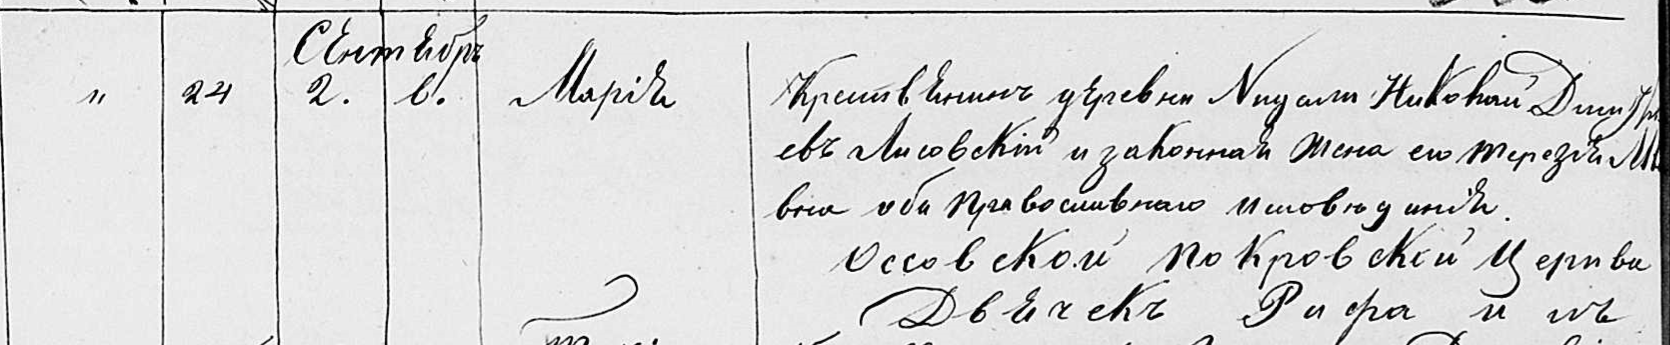 Сентябрь
" 24 2. 6. Марія Крестьянинъ деревни Николай Дмитрі
евъ Лисовскій и законная жена его Терезія
вна оба православнаго исповѣданія.
Оссовской Покровской Церкви